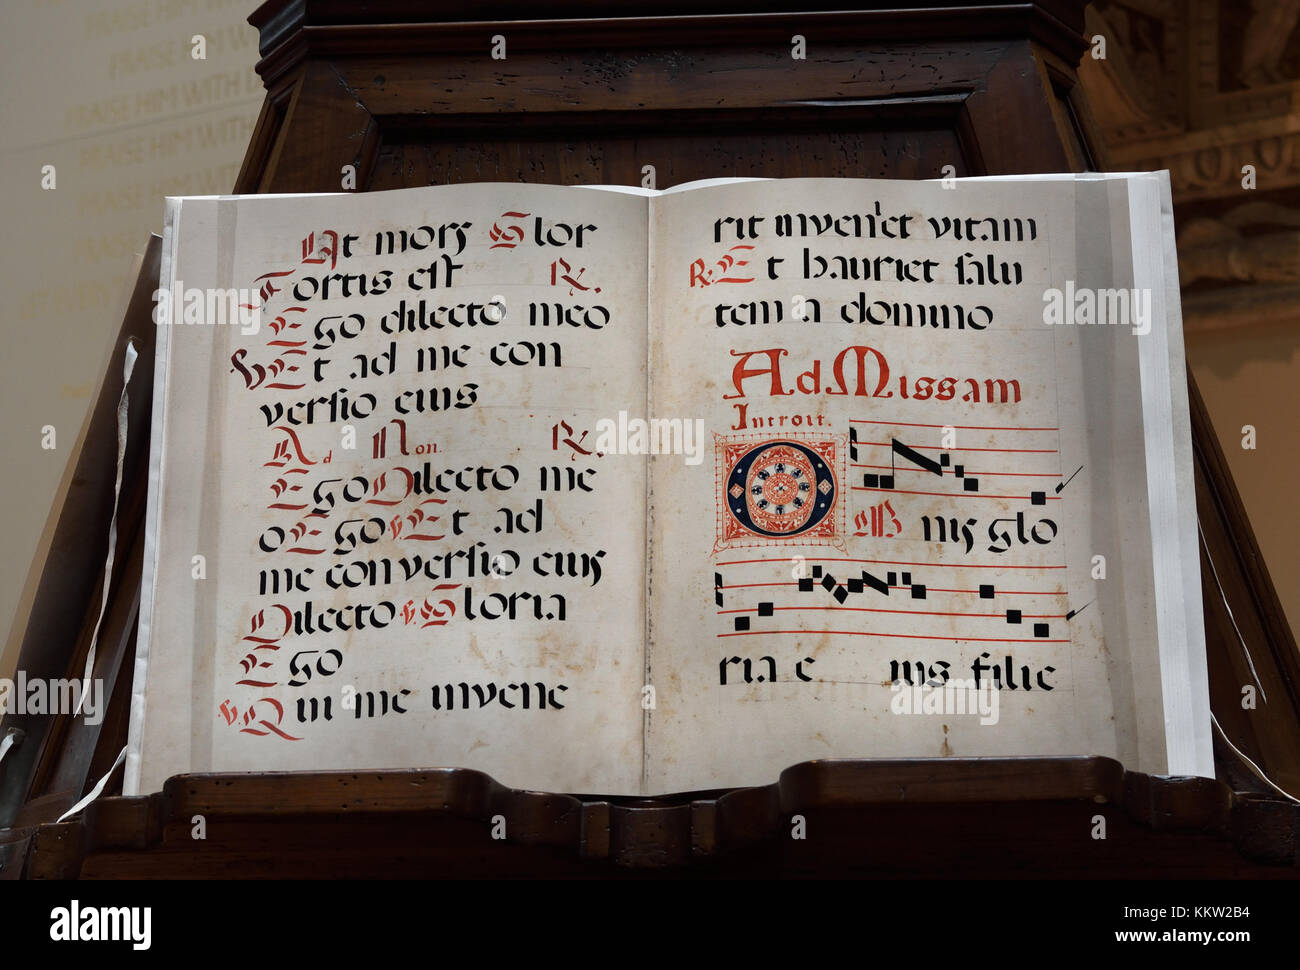 PRAISE HIM WITH
PRAISE HIM WITH
PRAISE HIM WITH
PRAISE HIM WITH
At mors Glor
Fortis est ℟.
Ego dilecto meo
℣ Et ad me con
versio eius
Ad Non. ℟.
Ego Dilecto me
o Ego ℣ Et ad
me conversio eius
Dilecto ℣ Gloria
Ego
℣ Qui me invene
rit inveniet vitam
℟. Et hauriet salu
tem a domino
Ad Missam
Introit.
OMnis glo
ria eius filie
alamy
a
alamy
Image ID: KKW2B4
www.alamy.com